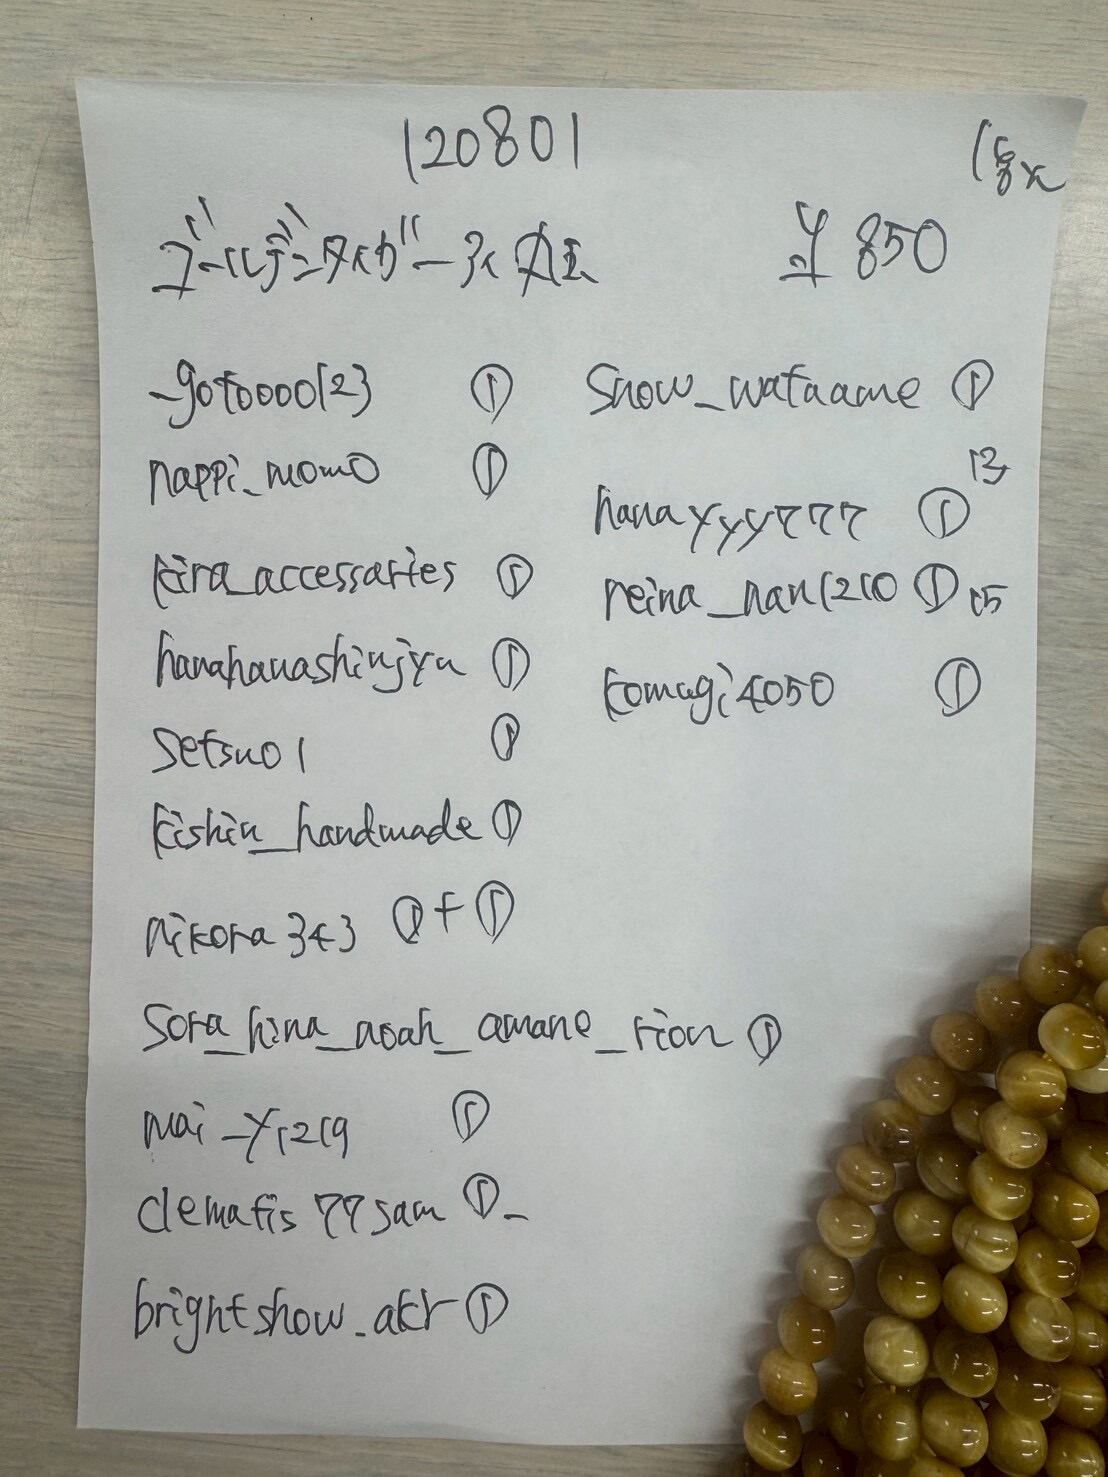 120801
¥ 850
_gotoooo123 ①
nappi_momo ①
kira_accessaries ①
hanahanashinjyu ①
setsu01 ①
kishin_handmade ①
nikora343 ①+①
sora_hina_noah_amane_rion ①
mai_y1219 ①
clematis77sam ①
brightshow_akr ①
snow_wataame ①
13
hanayyy777 ①
reina_nan1210 ① 15
komugi4050 ①